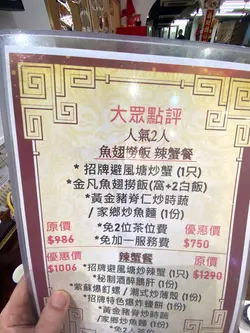 大眾點評
人氣2人
魚翅撈飯 辣蟹餐
* 招牌避風塘炒蟹 (1只)
*金凡魚翅撈飯(窩+2白飯)
*黃金豬脊仁炒時蔬
/ 家鄉炒魚麵 (1份)
* 免2位茶位費
* 免加一服務費
原價
$986
優惠價
$750
辣蟹餐
優惠價
$1006
原價
$1290
*招牌避風塘炒辣蟹 (1只)
*秘制酒醉鵝肝 (1份)
*紫蘇爆釘螺 / 潮式炒薄殼 (1份)
*招牌特色爆炒蟶肝 (1份)
*黃金豬脊仁炒時蔬
/家鄉炒魚麵 (1份)